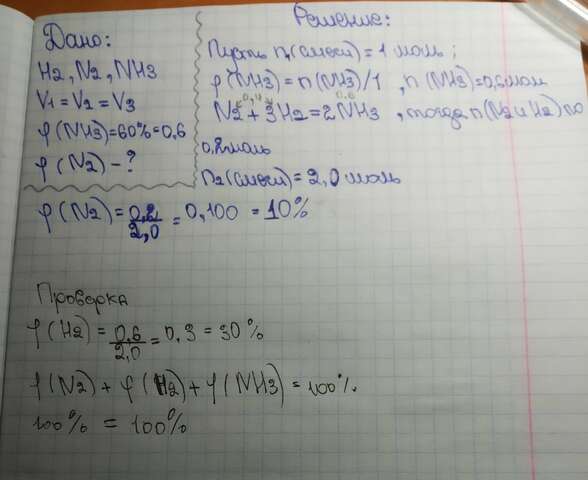 Дано:
H2, N2, NH3
V1 = V2 = V3
φ(NH3) = 60% = 0,6
φ(N2) - ?
Решение:
Пусть n1(смеси) = 1 моль;
φ(NH3) = n(NH3)/1, n(NH3) = 0,6 моль
0,4 0.6
N2 + 3H2 = 2NH3, тогда n(N2 и H2) по
0,2 моль
n2(смеси) = 2,0 моль
φ(N2) = 0,2/2,0 = 0,100 = 10%
Проверка
φ(H2) = 0,6/2,0 = 0,3 = 30%
φ(N2) + φ(H2) + φ(NH3) = 100%
100% = 100%